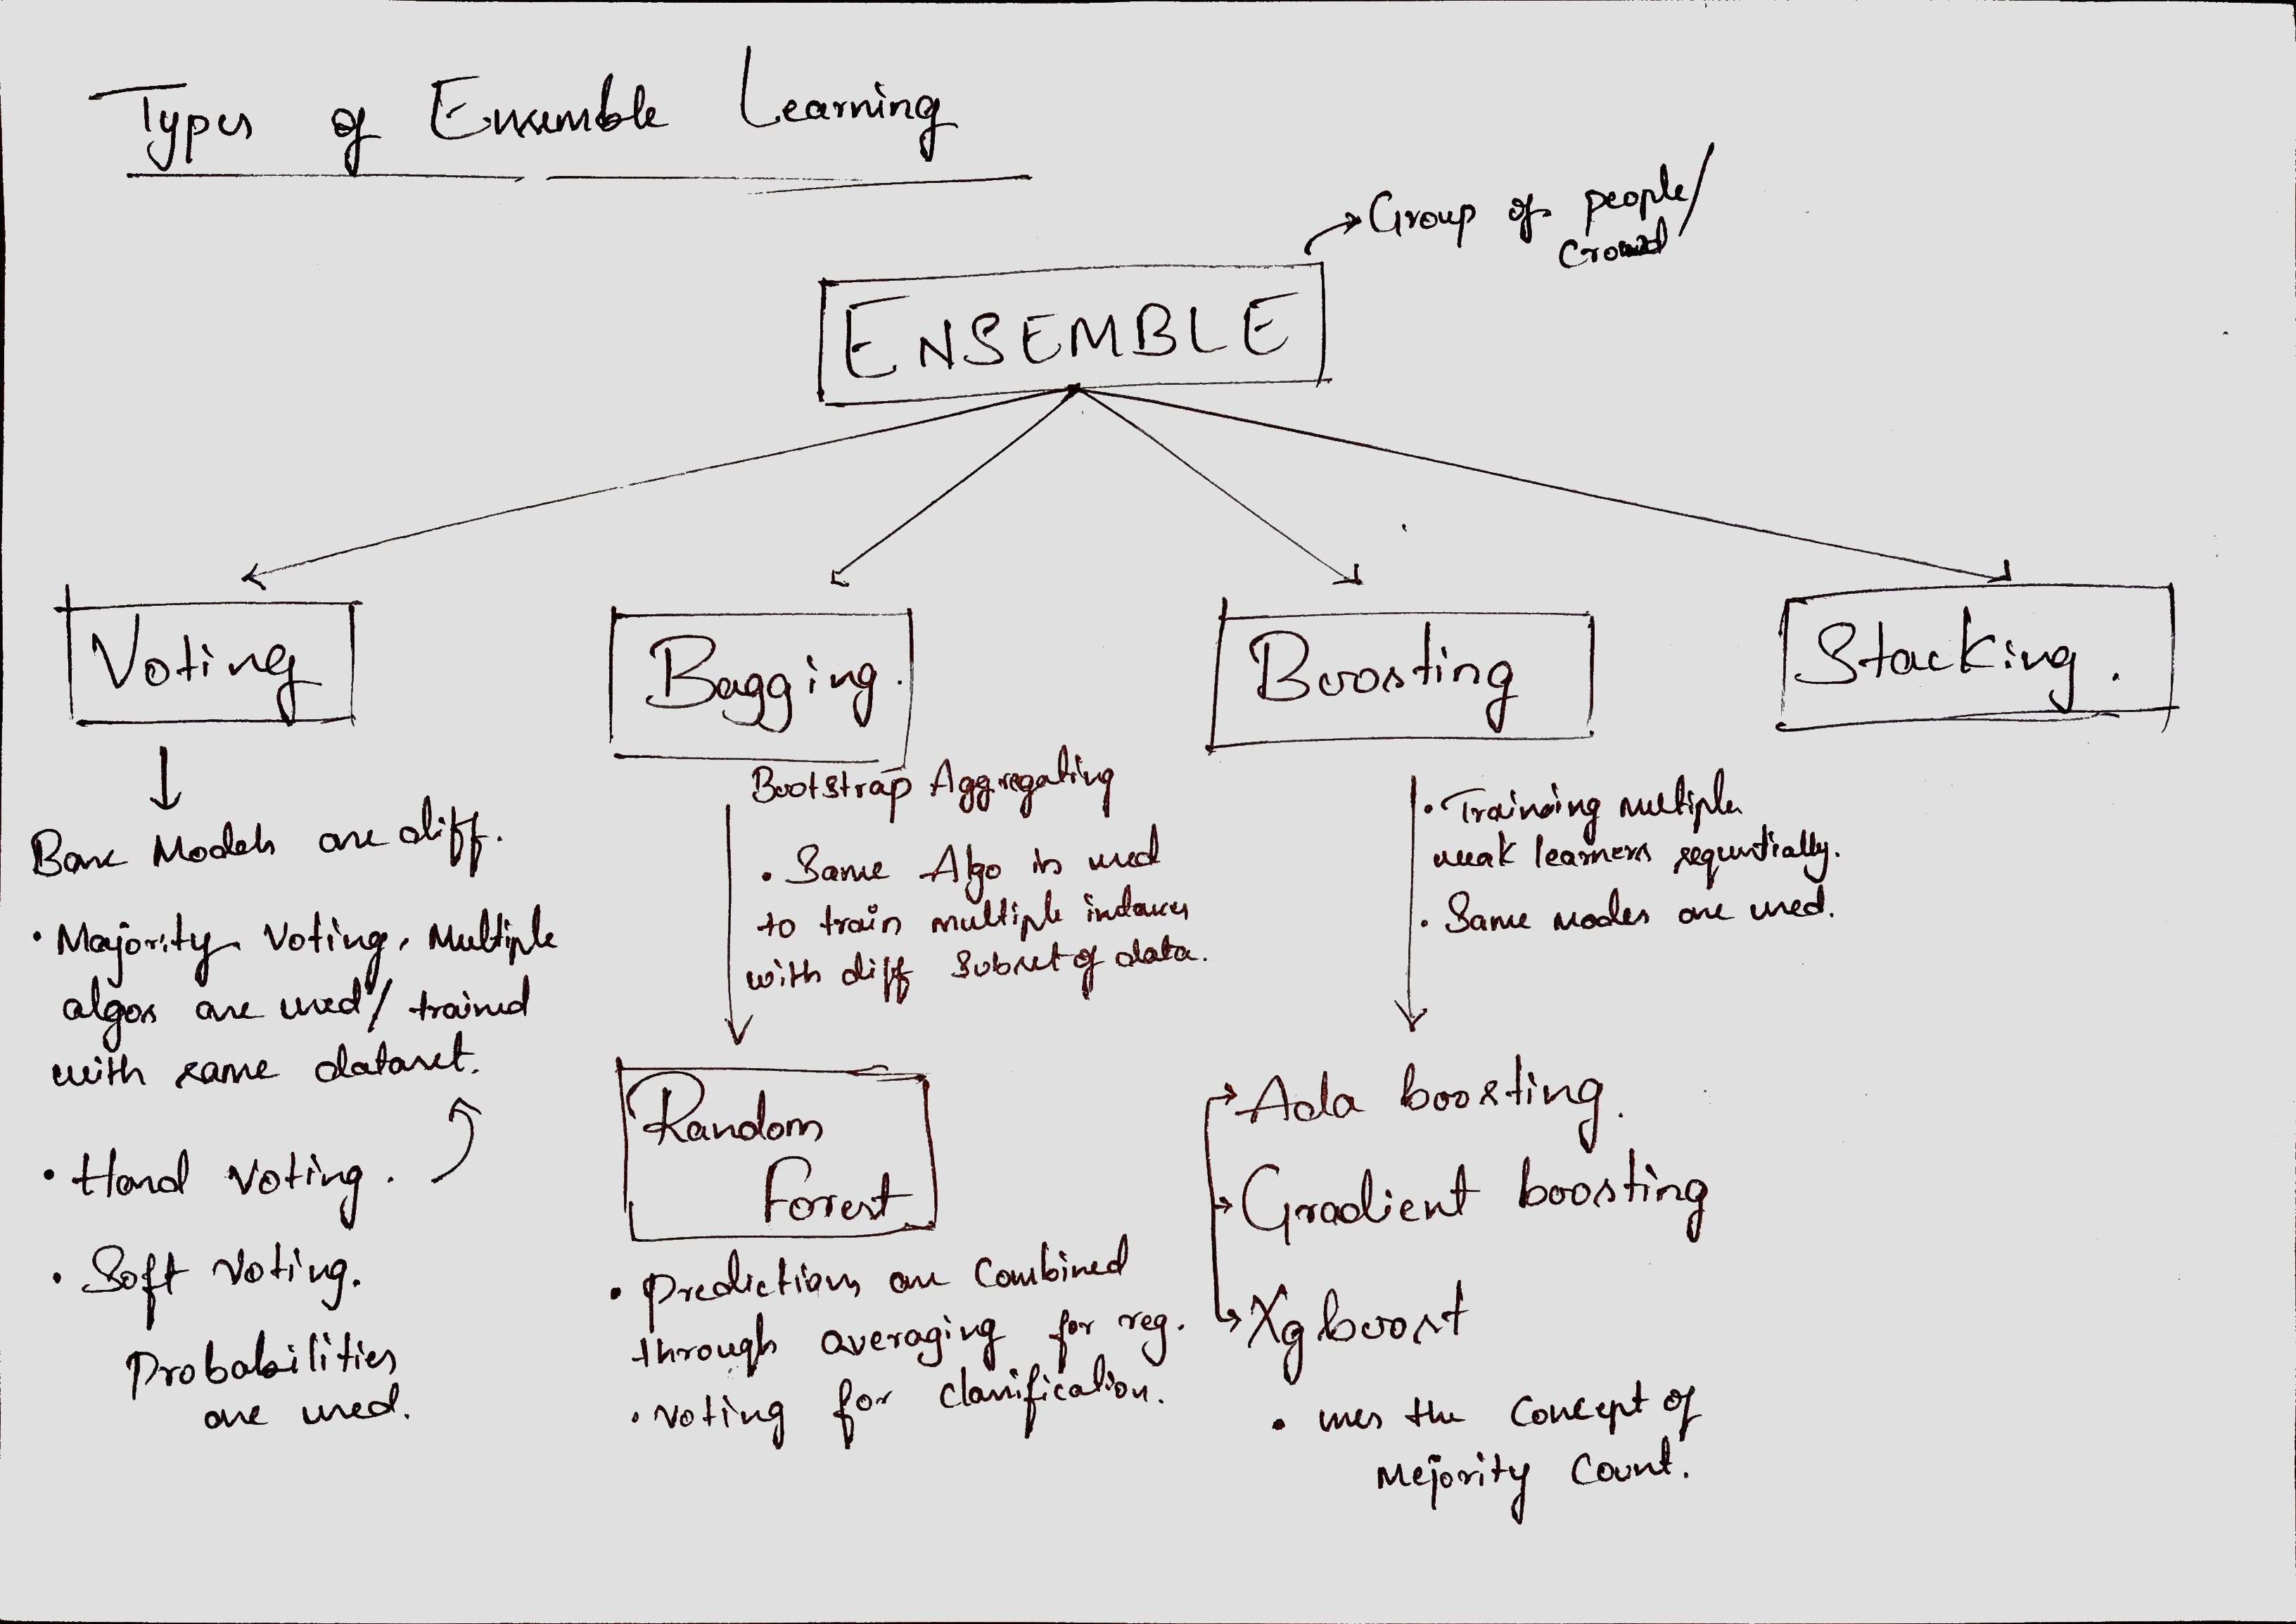 Types of Ensemble Learning
Group of people/
Crowd
ENSEMBLE
Voting
Base Models are diff.
• Majority Voting, Multiple
algos are used/ trained
with same dataset.
• Hard Voting.
• Soft Voting.
Probabilities
are used.
Bagging.
Bootstrap Aggregating
• Same Algo is used
to train multiple
with diff Subset of data.
Random
Forest
• Predictions are Combined
through averaging for reg.
• Voting for classification.
Boosting
• Training multiple
weak learners sequentially.
• Same modes are used.
Ada boosting.
Gradient boosting
Xgboost
• uses the Concept of
Mejority Count.
Stacking.